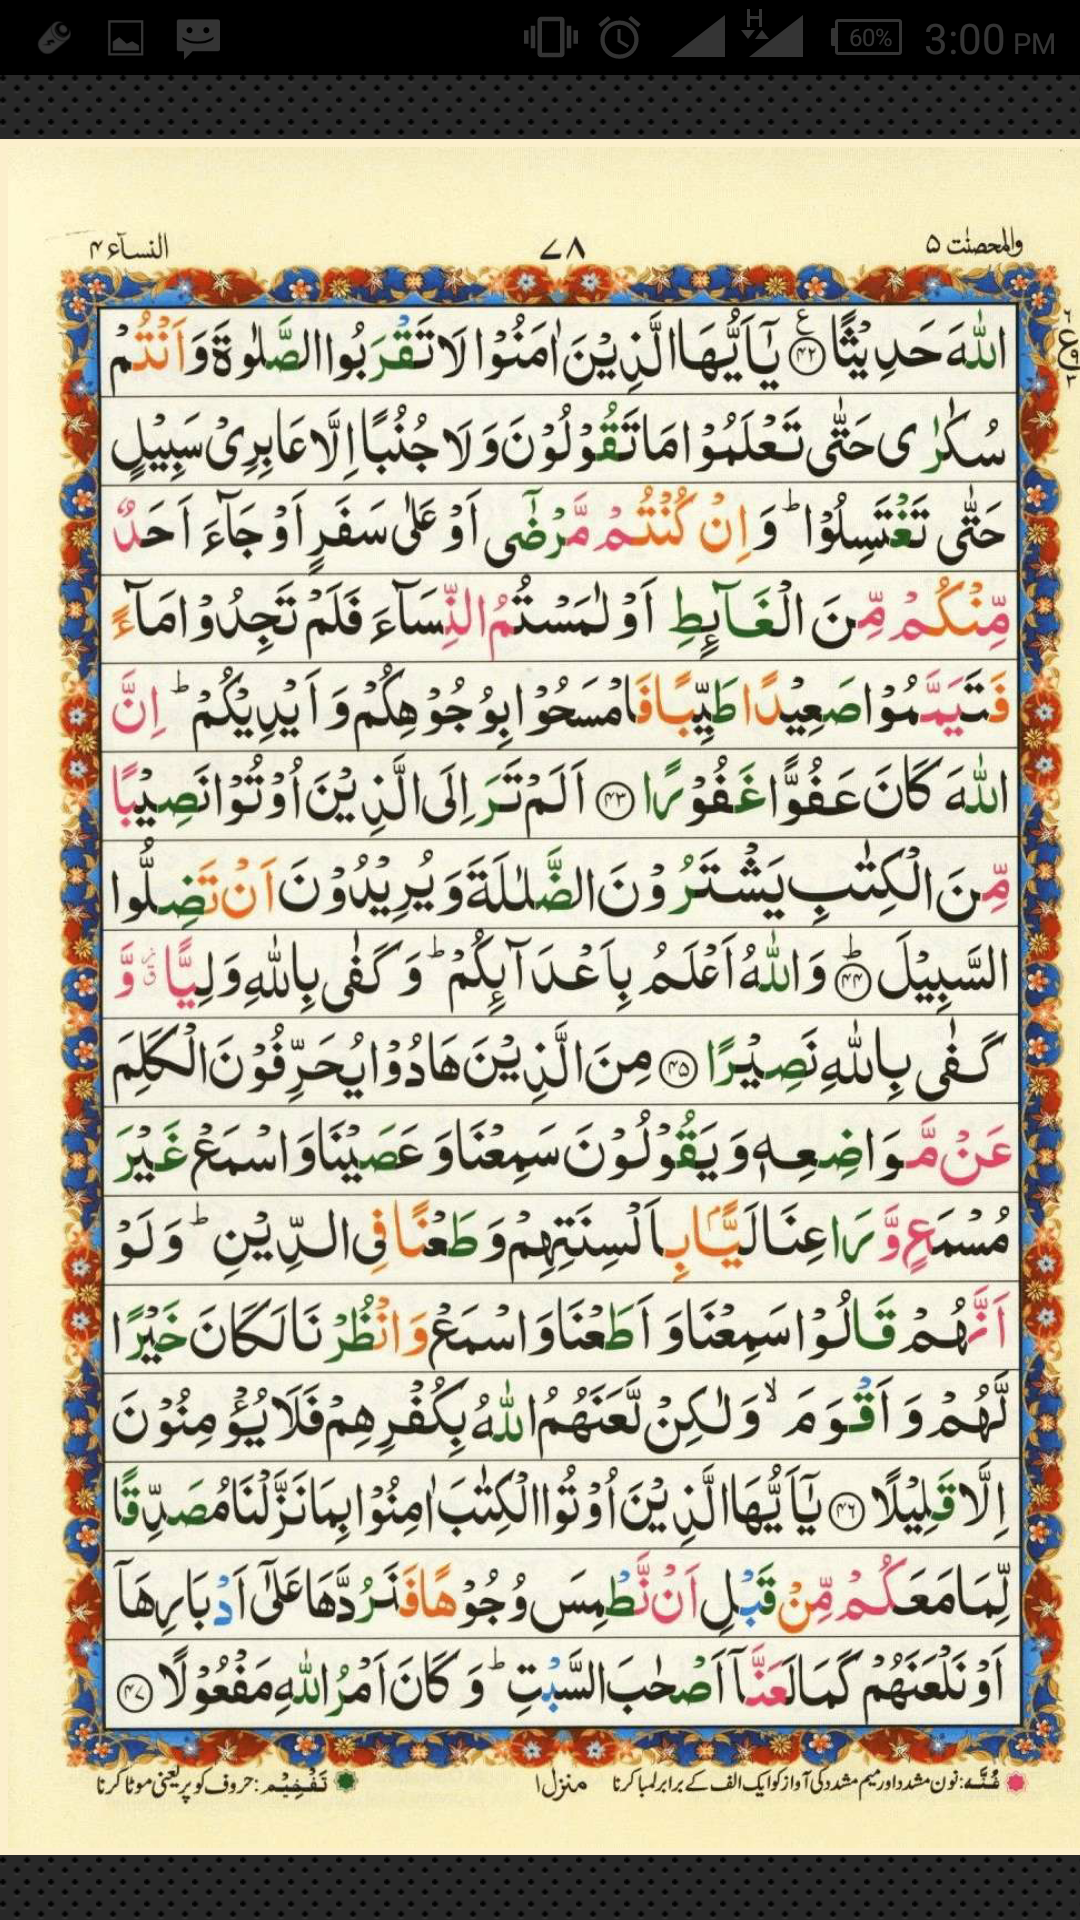 H 60% 3:00 PM
والمحصنٰت ۵ ۷۸ النسآء ۴
اللّٰهَ حَدِيْثًا ﴿۴۲﴾ ع يٰۤاَيُّهَا الَّذِيْنَ اٰمَنُوْا لَا تَقْرَبُوا الصَّلٰوةَ وَاَنْتُمْ
سُكٰرٰى حَتّٰى تَعْلَمُوْا مَا تَقُوْلُوْنَ وَلَا جُنُبًا اِلَّا عَابِرِىْ سَبِيْلٍ
حَتّٰى تَغْتَسِلُوْا ؕ وَاِنْ كُنْتُمْ مَّرْضٰٓى اَوْ عَلٰى سَفَرٍ اَوْ جَآءَ اَحَدٌ
مِّنْكُمْ مِّنَ الْغَآىِٕطِ اَوْ لٰمَسْتُمُ النِّسَآءَ فَلَمْ تَجِدُوْا مَآءً
فَتَيَمَّمُوْا صَعِيْدًا طَيِّبًا فَامْسَحُوْا بِوُجُوْهِكُمْ وَاَيْدِيْكُمْ ؕ اِنَّ
اللّٰهَ كَانَ عَفُوًّا غَفُوْرًا ﴿۴۳﴾ اَلَمْ تَرَ اِلَى الَّذِيْنَ اُوْتُوْا نَصِيْبًا
مِّنَ الْكِتٰبِ يَشْتَرُوْنَ الضَّلٰلَةَ وَيُرِيْدُوْنَ اَنْ تَضِلُّوا
السَّبِيْلَ ﴿۴۴﴾ؕ وَاللّٰهُ اَعْلَمُ بِاَعْدَآىِٕكُمْ ؕ وَكَفٰى بِاللّٰهِ وَلِيًّا ۗ وَّ
كَفٰى بِاللّٰهِ نَصِيْرًا ﴿۴۵﴾ مِنَ الَّذِيْنَ هَادُوْا يُحَرِّفُوْنَ الْكَلِمَ
عَنْ مَّوَاضِعِهٖ وَيَقُوْلُوْنَ سَمِعْنَا وَعَصَيْنَا وَاسْمَعْ غَيْرَ
مُسْمَعٍ وَّرَاعِنَا لَيًّۢا بِاَلْسِنَتِهِمْ وَطَعْنًا فِى الدِّيْنِ ؕ وَلَوْ
اَنَّهُمْ قَالُوْا سَمِعْنَا وَاَطَعْنَا وَاسْمَعْ وَانْظُرْنَا لَكَانَ خَيْرًا
لَّهُمْ وَاَقْوَمَ ۙ وَلٰكِنْ لَّعَنَهُمُ اللّٰهُ بِكُفْرِهِمْ فَلَا يُؤْمِنُوْنَ
اِلَّا قَلِيْلًا ﴿۴۶﴾ يٰۤاَيُّهَا الَّذِيْنَ اُوْتُوا الْكِتٰبَ اٰمِنُوْا بِمَا نَزَّلْنَا مُصَدِّقًا
لِّمَا مَعَكُمْ مِّنْ قَبْلِ اَنْ نَّطْمِسَ وُجُوْهًا فَنَرُدَّهَا عَلٰۤى اَدْبَارِهَاۤ
اَوْ نَلْعَنَهُمْ كَمَا لَعَنَّاۤ اَصْحٰبَ السَّبْتِ ؕ وَكَانَ اَمْرُ اللّٰهِ مَفْعُوْلًا ﴿۴۷﴾
۶
ع ۹
۴
غُنَّه: نون مشدد اور میم مشدد کی آواز کو ایک الف کے برابر لمبا کرنا منزل ۱ تَفْخِيْم: حروف کو پر یعنی موٹا کرنا